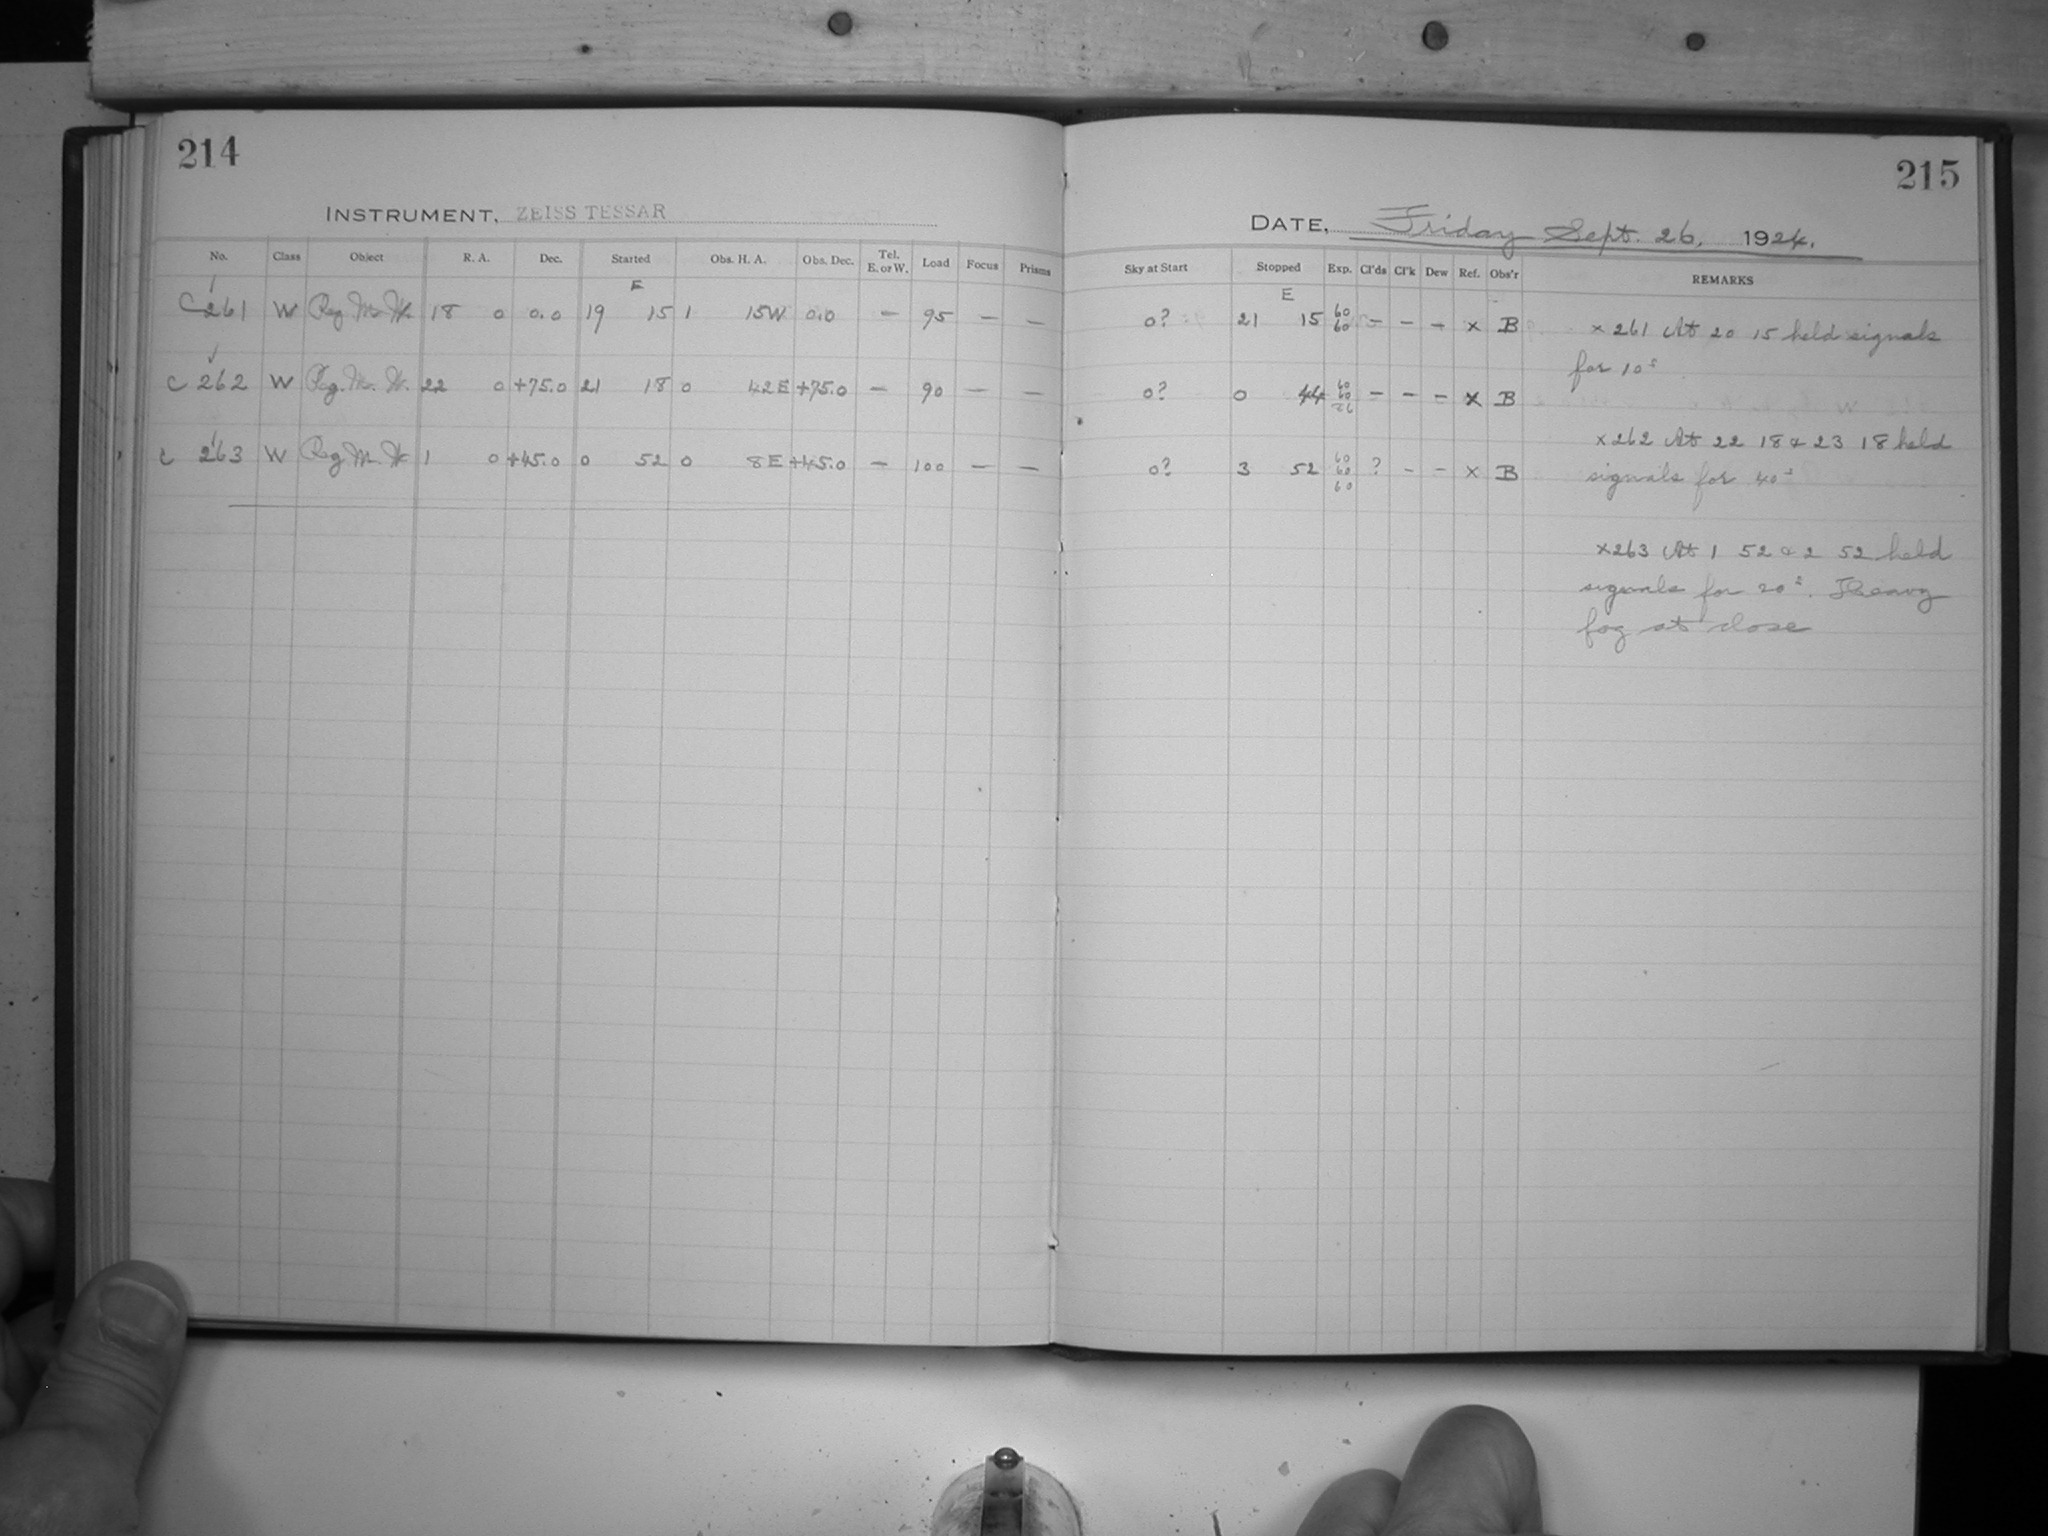 214
INSTRUMENT, ZEISS TESSAR
No. Class Object R. A. Dec. Started Obs. H. A. Obs. Dec. Tel. E. or W. Load Focus Prisms
E
C 261 W Reg. M. W. 18 0 0.0 19 15 1 15W 0.0 — 95 — —
C 262 W Reg. M. W. 22 0 +75.0 21 18 0 42E +75.0 — 90 — —
C 263 W Reg M. W 1 0 +45.0 0 52 0 8E +45.0 — 100 — —
215
DATE, Friday Sept. 26, 1924.
Sky at Start Stopped Exp. Cl'ds Cl'k Dew Ref. Obs'r REMARKS
E
0? 21 15 60 60 – – – x B
0? 0 44 60 60 26 – – – x B
0? 3 52 60 60 60 ? – – x B
x 261 At 20 15 held signals
for 10s
x262 At 22 18 & 23 18 held
signals for 40s
x263 At 1 52 & 2 52 held
signals for 20s. Heavy
fog at close